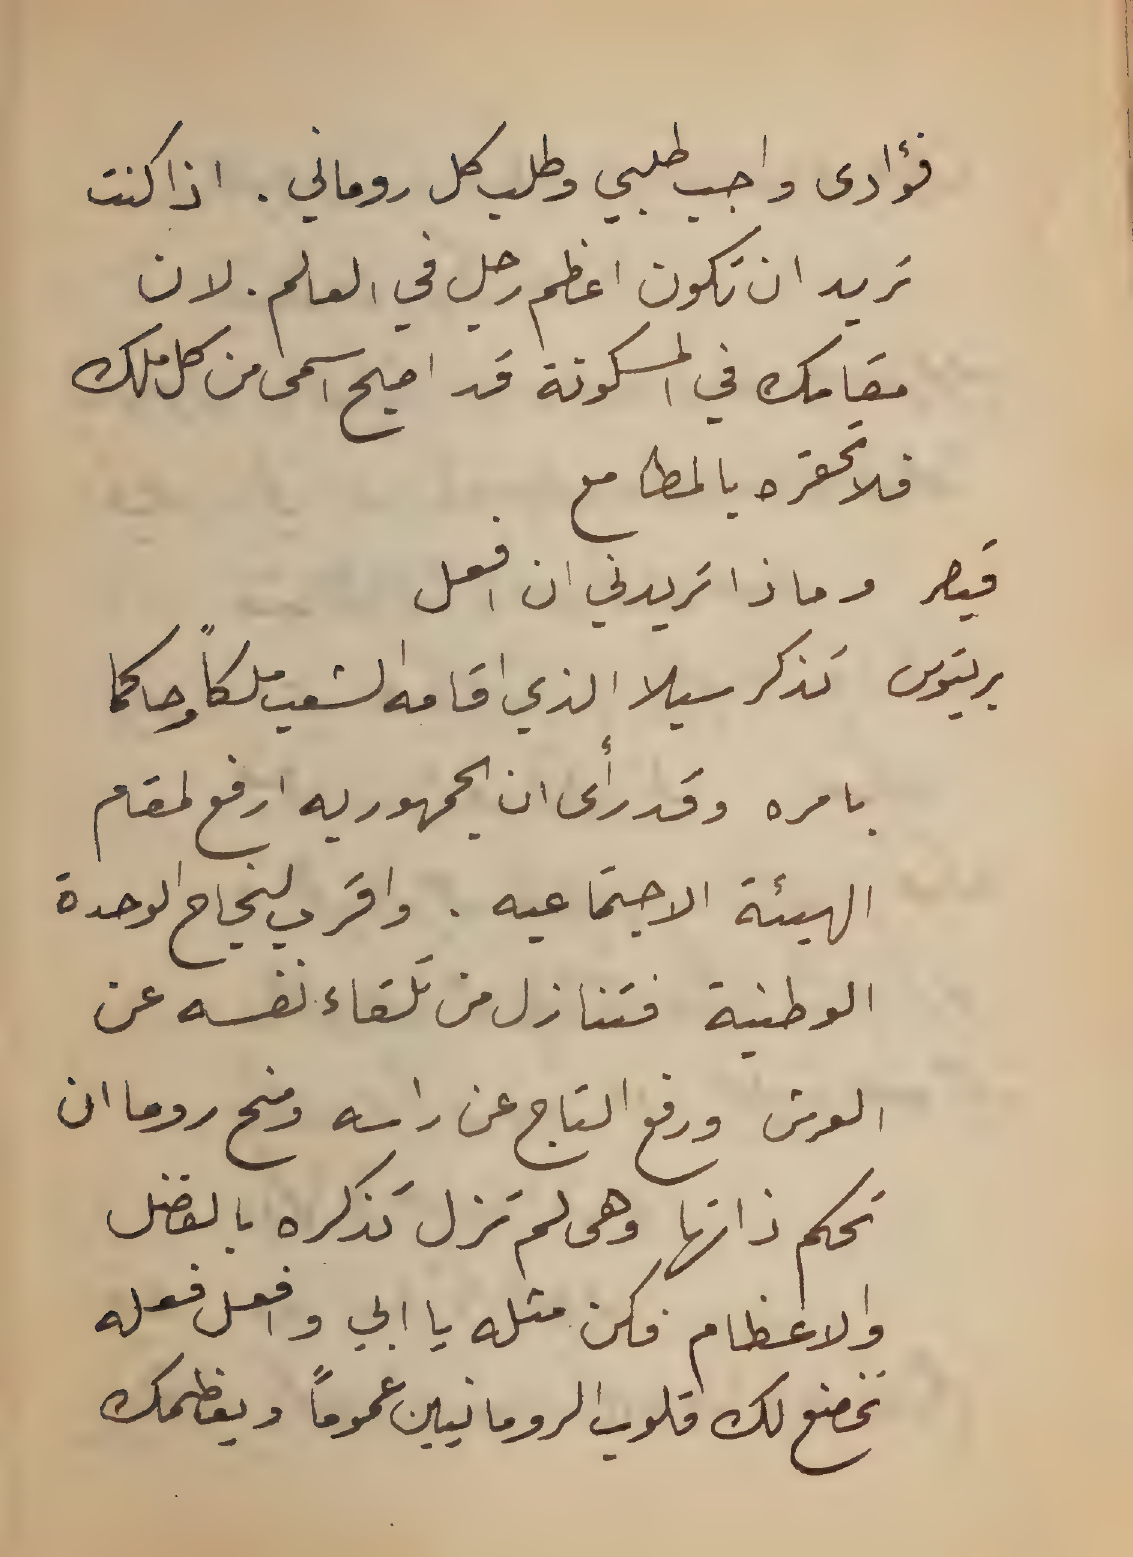 فؤادى واجب طلبي وطلب كل روماني . اذا كنت
تريد ان تكون اعظم رجل في العالم . لان
مقامك في المسكونة قد اصبح اسمى من كل ملك
فلا تحقره بالمطامع
قيصر وماذا تريدني ان افعل
بريتوس تذكر سيلا الذي اقامه الشعب ملكاً وحاكما
بامره وقد رأى ان الجمهوريه ارفع لمقام
الهيئة الاجتماعيه . واقرب لنجاح الوحدة
الوطنية فتنازل من تلقاء نفسه عن
العرش ورفع التاج عن راسه ومنح روما ان
تحكم ذاتها وهى لم تزل تذكره بالفضل
والاعظام فكن مثله يا ابي وافعل فعله
تخضع لك قلوب الرومانيين عموماً ويعظمك